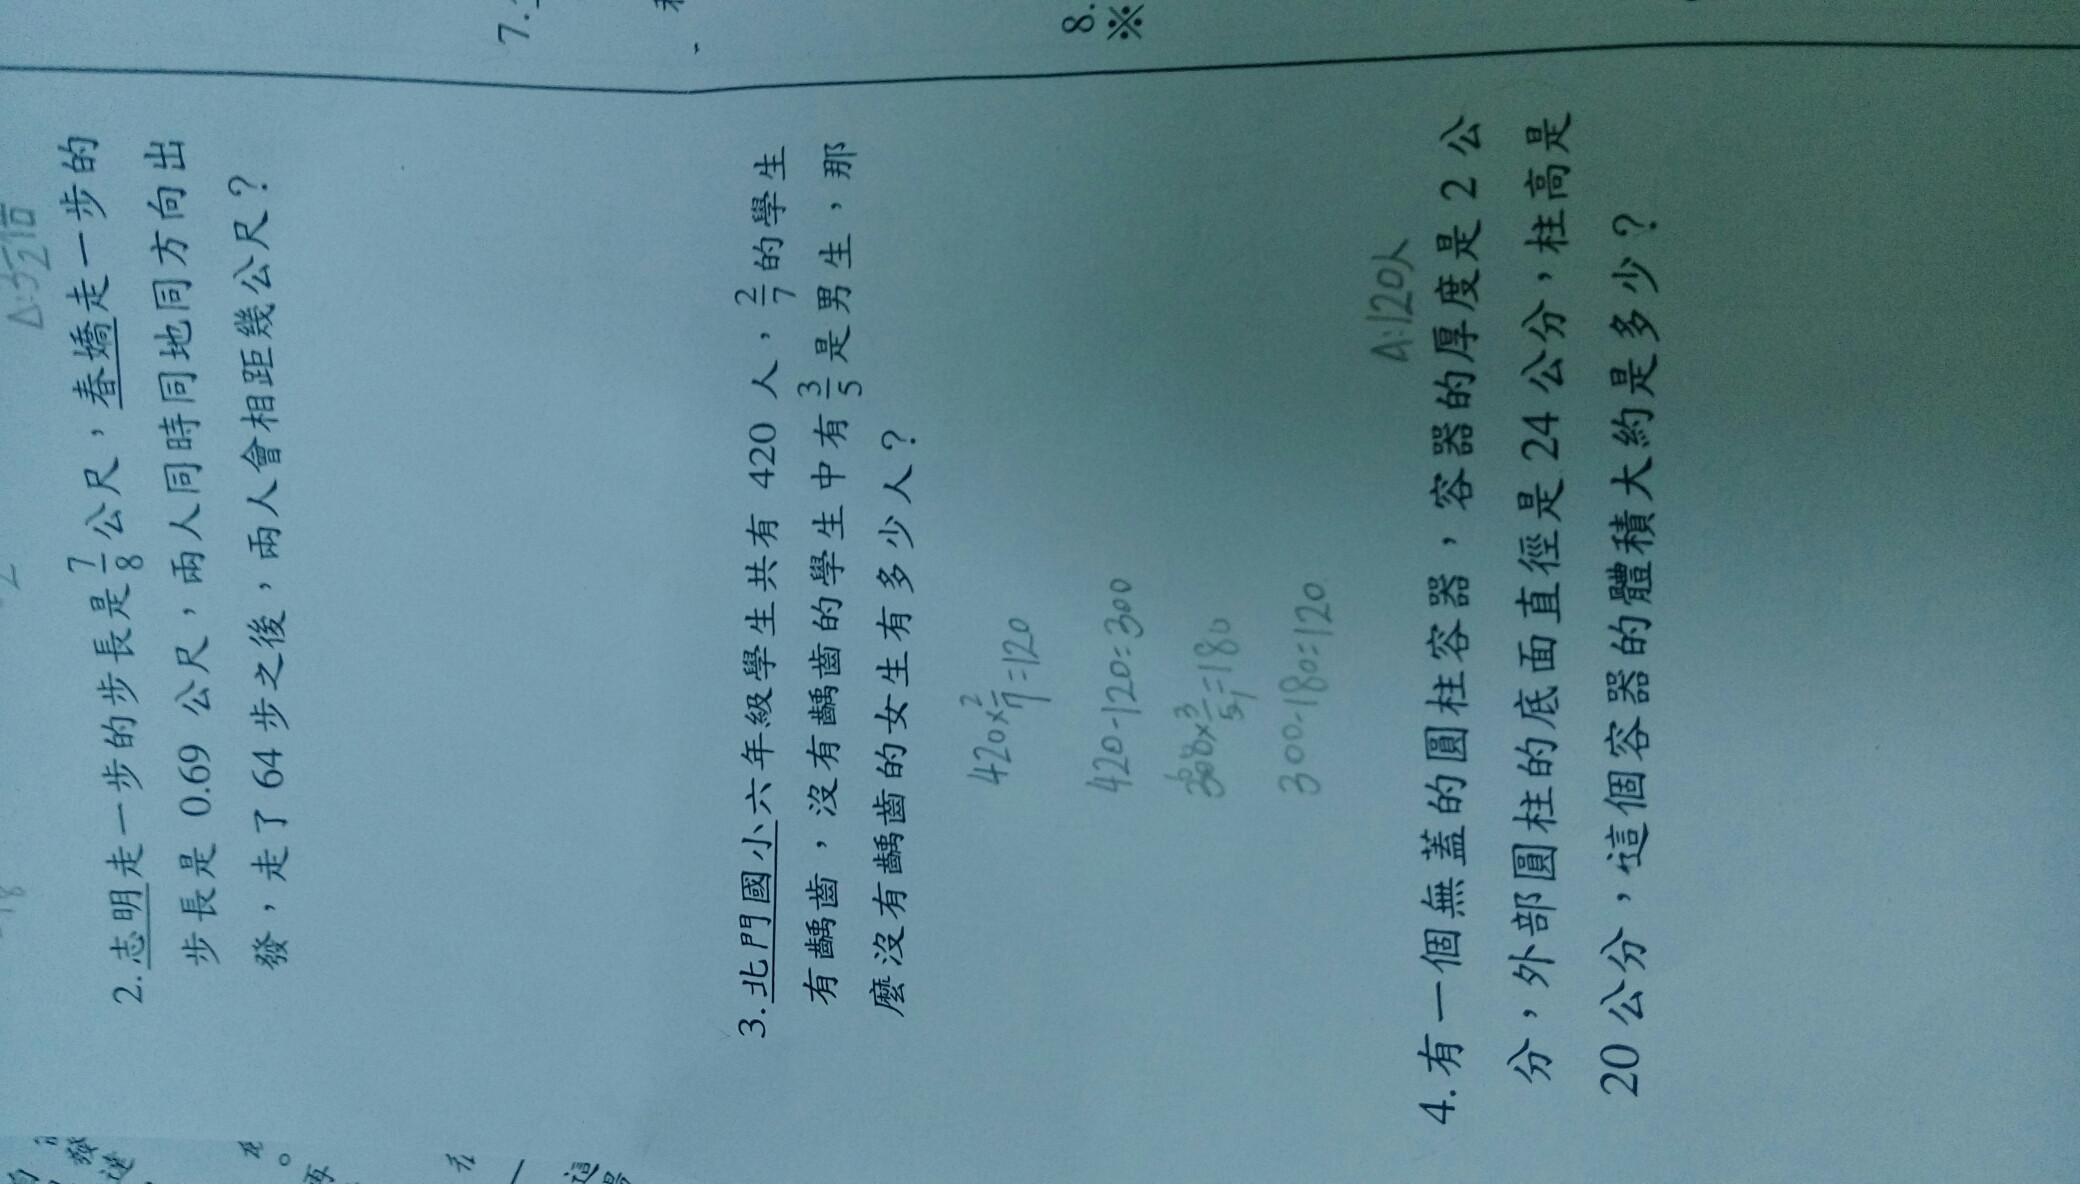 7.
8.
※
2.志明走一步的步長是7/8公尺，春嬌走一步的
步長是 0.69 公尺，兩人同時同地同方向出
發，走了 64 步之後，兩人會相距幾公尺？
3.北門國小六年級學生共有 420 人，2/7的學生
有齲齒，沒有齲齒的學生中有3/5是男生，那
麼沒有齲齒的女生有多少人？
420×2/7=120
420-120=300
300×3/5=180
300-180=120
A:120人
4.有一個無蓋的圓柱容器，容器的厚度是 2 公
分，外部圓柱的底面直徑是 24 公分，柱高是
20 公分，這個容器的體積大約是多少？